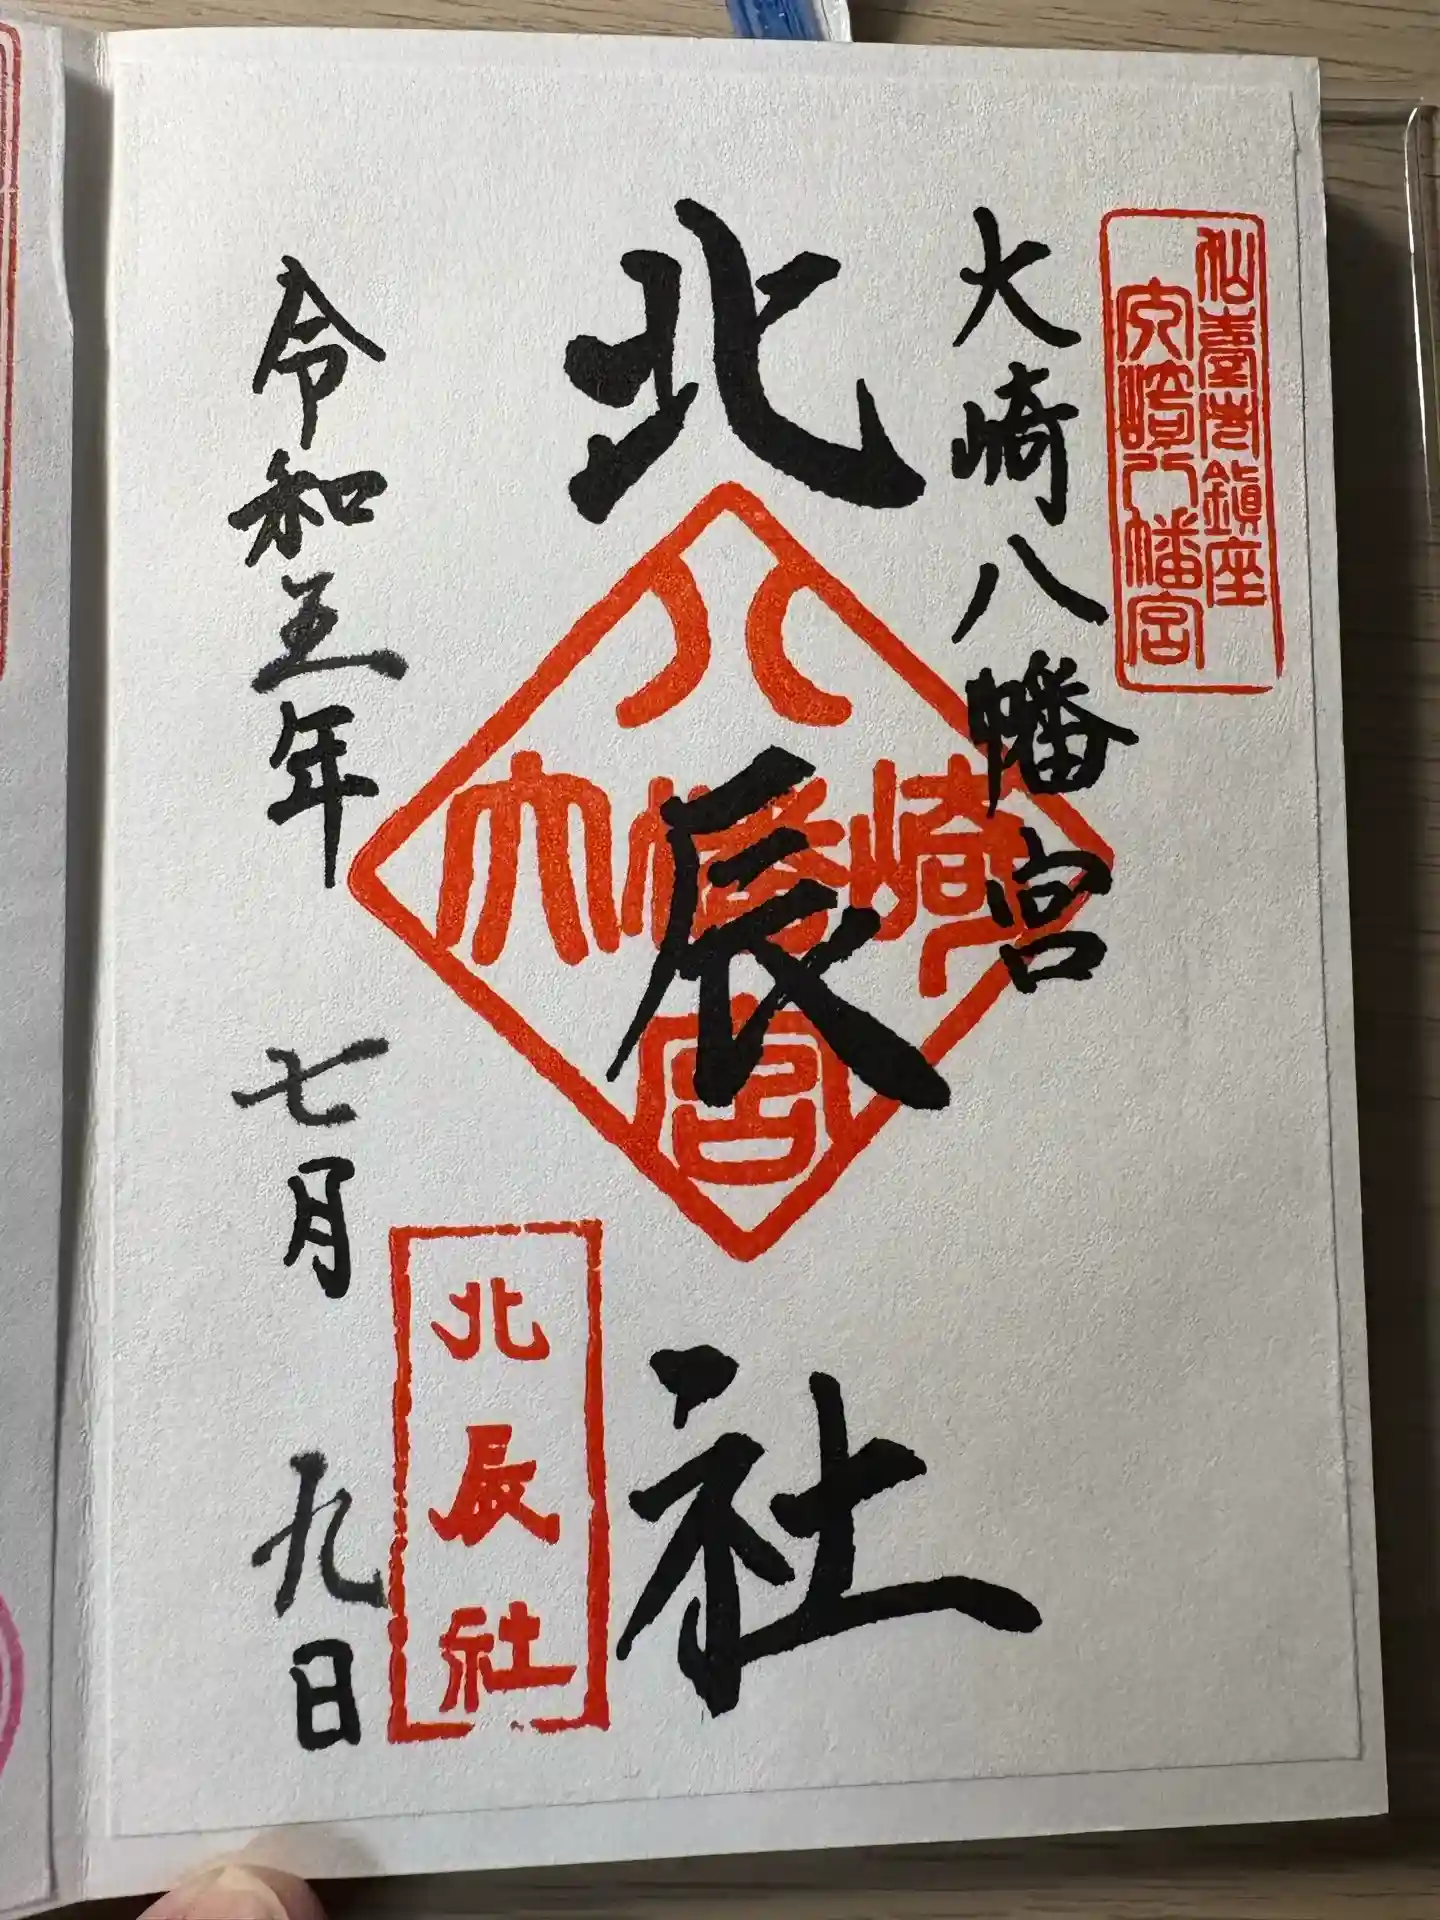 仙臺市鎮座
八幡宮
大崎八幡宮
北辰社
八
大幡崎
宮
北辰社
令和五年 七月 九日